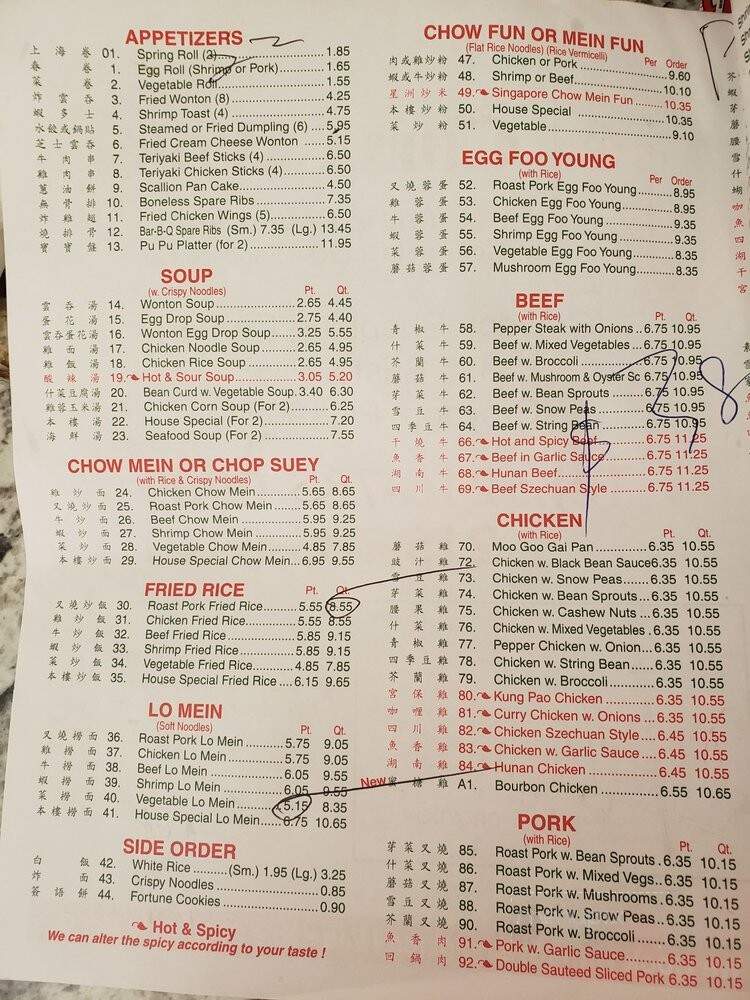 APPETIZERS
上海卷 01. Spring Roll (3) 1.85
春卷 1. Egg Roll (Shrimp or Pork) 1.65
菜卷 2. Vegetable Roll 1.55
炸雲吞 3. Fried Wonton (8) 4.25
蝦多士 4. Shrimp Toast (4) 4.75
水餃或鍋貼 5. Steamed or Fried Dumpling (6) 5.95
芝士雲吞 6. Fried Cream Cheese Wonton 5.15
牛肉串 7. Teriyaki Beef Sticks (4) 6.50
雞肉串 8. Teriyaki Chicken Sticks (4) 6.50
蔥油餅 9. Scallion Pan Cake 4.50
無骨排 10. Boneless Spare Ribs 7.35
炸雞翅 11. Fried Chicken Wings (5) 6.50
燒排骨 12. Bar-B-Q Spare Ribs (Sm.) 7.35 (Lg.) 13.45
寶寶盤 13. Pu Pu Platter (for 2) 11.95
SOUP
(w. Crispy Noodles) Pt. Qt.
雲吞湯 14. Wonton Soup 2.65 4.45
蛋花湯 15. Egg Drop Soup 2.75 4.40
雲吞蛋花湯 16. Wonton Egg Drop Soup 3.25 5.55
雞面湯 17. Chicken Noodle Soup 2.65 4.95
雞飯湯 18. Chicken Rice Soup 2.65 4.95
酸辣湯 19. Hot & Sour Soup 3.05 5.20
什菜豆腐湯 20. Bean Curd w. Vegetable Soup 3.40 6.30
雞蓉玉米湯 21. Chicken Corn Soup (For 2) 6.25
本樓湯 22. House Special (For 2) 7.20
海鮮湯 23. Seafood Soup (For 2) 7.55
CHOW MEIN OR CHOP SUEY
(with Rice & Crispy Noodles) Pt. Qt.
雞炒面 24. Chicken Chow Mein 5.65 8.65
叉燒炒面 25. Roast Pork Chow Mein 5.65 8.65
牛炒面 26. Beef Chow Mein 5.95 9.25
蝦炒面 27. Shrimp Chow Mein 5.95 9.25
菜炒面 28. Vegetable Chow Mein 4.85 7.85
本樓炒面 29. House Special Chow Mein 6.95 9.55
FRIED RICE Pt. Qt.
叉燒炒飯 30. Roast Pork Fried Rice 5.55 8.55
雞炒飯 31. Chicken Fried Rice 5.55 8.55
牛炒飯 32. Beef Fried Rice 5.85 9.15
蝦炒飯 33. Shrimp Fried Rice 5.85 9.15
菜炒飯 34. Vegetable Fried Rice 4.85 7.85
本樓炒飯 35. House Special Fried Rice 6.15 9.65
LO MEIN
(Soft Noodles) Pt. Qt.
叉燒撈面 36. Roast Pork Lo Mein 5.75 9.05
雞撈面 37. Chicken Lo Mein 5.75 9.05
牛撈面 38. Beef Lo Mein 6.05 9.55
蝦撈面 39. Shrimp Lo Mein 6.05 9.55
菜撈面 40. Vegetable Lo Mein 5.15 8.35
本樓撈面 41. House Special Lo Mein 6.75 10.65
SIDE ORDER
白飯 42. White Rice (Sm.) 1.95 (Lg.) 3.25
炸面 43. Crispy Noodles 0.85
簽語餅 44. Fortune Cookies 0.90
Hot & Spicy
We can alter the spicy according to your taste !
CHOW FUN OR MEIN FUN
(Flat Rice Noodles) (Rice Vermicelli) Per Order
肉或雞炒粉 47. Chicken or Pork 9.60
蝦或牛炒粉 48. Shrimp or Beef 10.10
星洲炒米 49. Singapore Chow Mein Fun 10.35
本樓炒粉 50. House Special 10.35
菜炒粉 51. Vegetable 9.10
EGG FOO YOUNG
(with Rice) Per Order
叉燒蓉蛋 52. Roast Pork Egg Foo Young 8.95
雞蓉蛋 53. Chicken Egg Foo Young 8.95
牛蓉蛋 54. Beef Egg Foo Young 9.35
蝦蓉蛋 55. Shrimp Egg Foo Young 9.35
菜蓉蛋 56. Vegetable Egg Foo Young 8.35
蘑菇蓉蛋 57. Mushroom Egg Foo Young 8.35
BEEF
(with Rice) Pt. Qt.
青椒牛 58. Pepper Steak with Onions 6.75 10.95
什菜牛 59. Beef w. Mixed Vegetables 6.75 10.95
芥蘭牛 60. Beef w. Broccoli 6.75 10.95
蘑菇牛 61. Beef w. Mushroom & Oyster Sc 6.75 10.95
芽菜牛 62. Beef w. Bean Sprouts 6.75 10.95
雪豆牛 63. Beef w. Snow Peas 6.75 10.95
四季豆牛 64. Beef w. String Bean 6.75 10.95
干燒牛 66. Hot and Spicy Beef 6.75 11.25
魚香牛 67. Beef in Garlic Sauce 6.75 11.25
湖南牛 68. Hunan Beef 6.75 11.25
四川牛 69. Beef Szechuan Style 6.75 11.25
CHICKEN
(with Rice) Pt. Qt.
蘑菇雞 70. Moo Goo Gai Pan 6.35 10.55
豉汁雞 72. Chicken w. Black Bean Sauce 6.35 10.55
雪豆雞 73. Chicken w. Snow Peas 6.35 10.55
芽菜雞 74. Chicken w. Bean Sprouts 6.35 10.55
腰果雞 75. Chicken w. Cashew Nuts 6.35 10.55
什菜雞 76. Chicken w. Mixed Vegetables 6.35 10.55
青椒雞 77. Pepper Chicken w. Onion 6.35 10.55
四季豆雞 78. Chicken w. String Bean 6.35 10.55
芥蘭雞 79. Chicken w. Broccoli 6.35 10.55
宮保雞 80. Kung Pao Chicken 6.35 10.55
咖喱雞 81. Curry Chicken w. Onions 6.35 10.55
四川雞 82. Chicken Szechuan Style 6.45 10.55
魚香雞 83. Chicken w. Garlic Sauce 6.45 10.55
湖南雞 84. Hunan Chicken 6.35 10.55
New 蜜糖雞 A1. Bourbon Chicken 6.55 10.65
PORK
(with Rice) Pt. Qt.
芽菜叉燒 85. Roast Pork w. Bean Sprouts 6.35 10.15
什菜叉燒 86. Roast Pork w. Mixed Vegs 6.35 10.15
蘑菇叉燒 87. Roast Pork w. Mushrooms 6.35 10.15
雪豆叉燒 88. Roast Pork w. Snow Peas 6.35 10.15
芥蘭叉燒 90. Roast Pork w. Broccoli 6.35 10.15
魚香肉 91. Pork w. Garlic Sauce 6.35 10.15
回鍋肉 92. Double Sauteed Sliced Pork 6.35 10.15